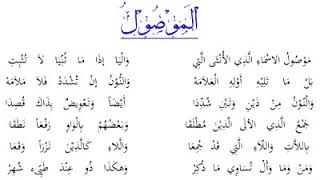 اَلْمَوْصُوْلُ
مَوْصُولُ الاسْمَاءِ الَّذِي الْأُنْثَى الَّتِي وَالْيَا إِذَا مَا ثُنِّيَا لَا تُثْبِتِ
بَلْ مَا تَلِيْهِ أَوْلِهِ الْعَلَامَهْ وَالنُّوْنُ إِنْ تُشْدَدْ فَلَا مَلَامَهْ
وَالنُّوْنُ مِنْ ذَيْنِ وَتَيْنِ شُدِّدَا أَيْضَاً وَتَعْوِيْضٌ بِذَاكَ قُصِدَا
جَمْعُ الَّذِي الأُلَى الَّذِيْنَ مُطْلَقَا وَبَعْضُهُمْ بِالْوَاوِ رَفْعَاً نَطَقَا
بِاللَّاتِ وَاللَّاءِ الَّتِي قَدْ جُمِعَا وَاللَّاءِ كَالَّذِيْنَ نَزْرَاً وَقَعَا
وَمَنْ وَمَا وَأَلْ تُسَاوِي مَا ذُكِرْ وَهَكَذَا ذُو عِنْدَ طَيِّىءٍ شُهِرْ